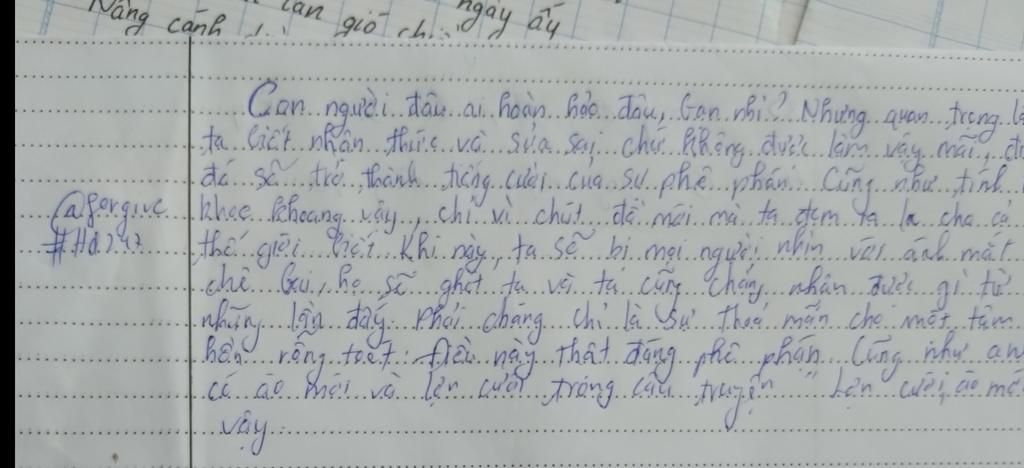 Nắng cánh gió ngày ấy
Con người đâu ai hoàn hảo đâu, bạn nhỉ? Nhưng quan trọng là
ta biết nhận thức và sửa sai chứ không được làm vậy mãi,
đó sẽ trở thành tiếng cười của sự phê phán. Cũng như tính
@forgive khoe khoang vậy, chỉ vì chút đồ mới mà ta đem ra la cho cả
thế giới biết. Khi này, ta sẽ bị mọi người nhìn với ánh mắt
chê bai, họ sẽ ghét ta và ta cũng chẳng nhận được gì từ
những lần đấy. Phải chăng chỉ là sự thoả mãn cho một tâm
hồn rỗng toét. Điều này thật đáng phê phán. Cũng như anh
có áo mới và lợn cưới trong câu truyện "Lợn cưới, áo mới
vậy.